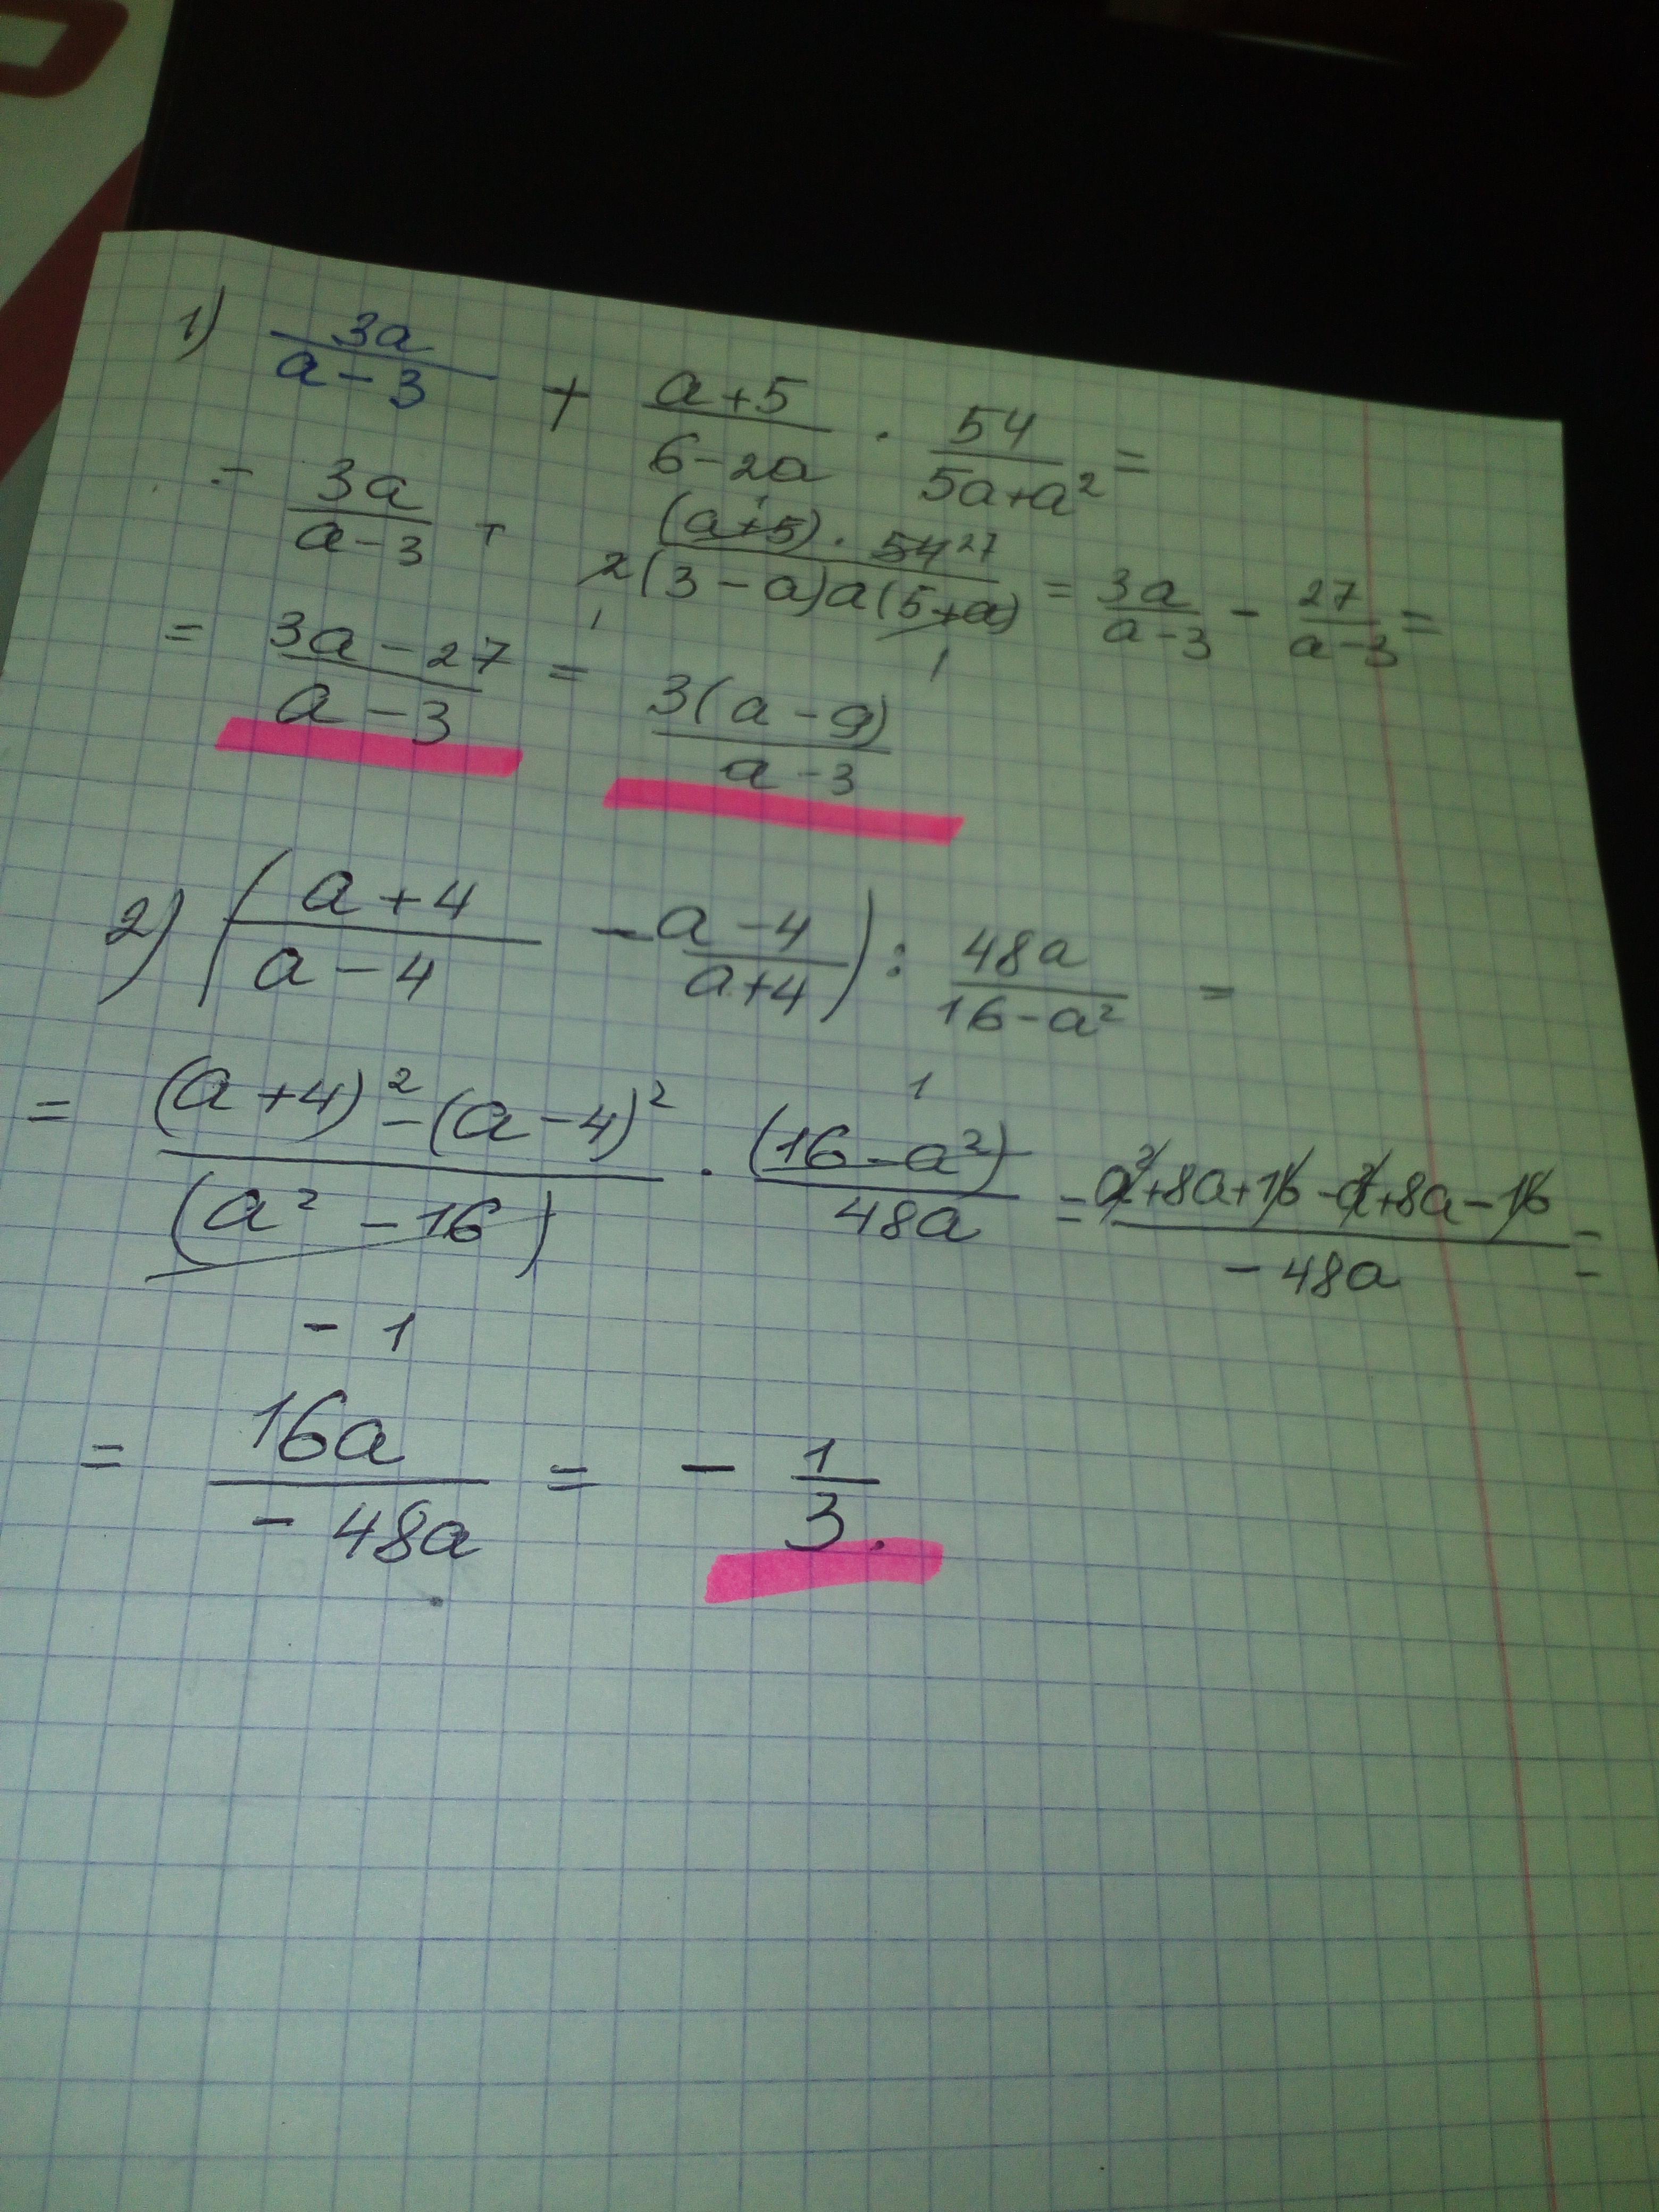 1) 3a/(a-3) + (a+5)/(6-2a) · 54/(5a+a²) =
= 3a/(a-3) + ((a+5) · 54 27)/(2(3-a)a(5+a)) = 3a/(a-3) - 27/(a-3) =
= (3a-27)/(a-3) = 3(a-9)/(a-3)
2) ((a+4)/(a-4) - (a-4)/(a+4)) : 48a/(16-a²) =
= ((a+4)²-(a-4)²)/(a²-16) · (16-a²)/48a = (a²+8a+16-a²+8a-16)/(-48a) =
-1
= 16a/(-48a) = -1/3.